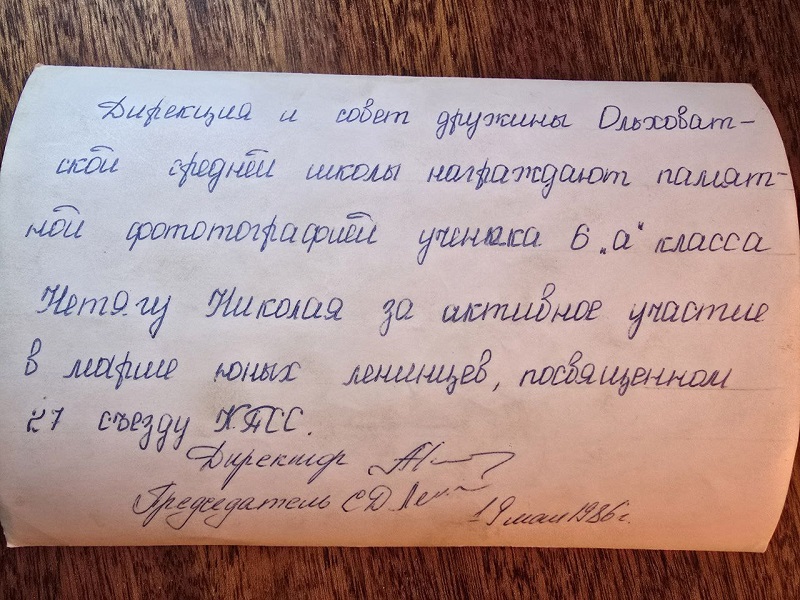 Дирекция и совет дружины Ольховат-
ской средней школы награждают памят-
ной фототографией ученика 6 „а“ класса
Нетягу Николая за активное участие
в марше юных ленинцев, посвященном
27 съезду КПСС.
Директор
Председатель СД
19 мая 1986 г.